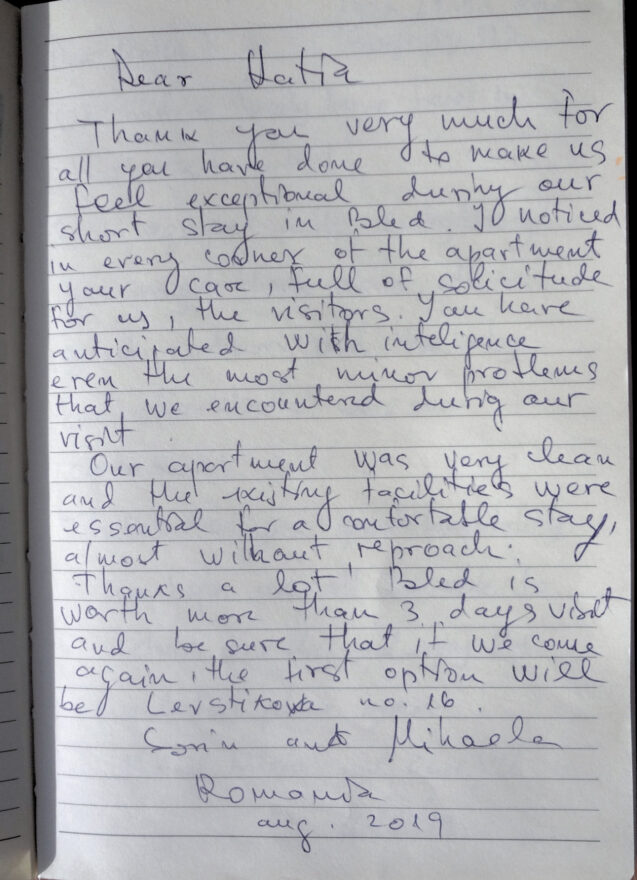 Dear Katja
Thank you very much for
all you have done to make us
feel exceptional during our
short stay in Bled. I noticed
in every corner of the apartment
your care, full of solicitude
for us, the visitors. You have
anticipated with inteligence
even the most minor problems
that we encountered durig our
visit
Our apartment was very clean
and the existing facilities were
essential for a confortable stay,
almost without reproach.
Thanks a lot! Bled is
worth more than 3 days visit
and be sure that if we come
again, the first option will
be Levstikova no. 16.
Sorin and Mihaela
Romania
aug. 2019